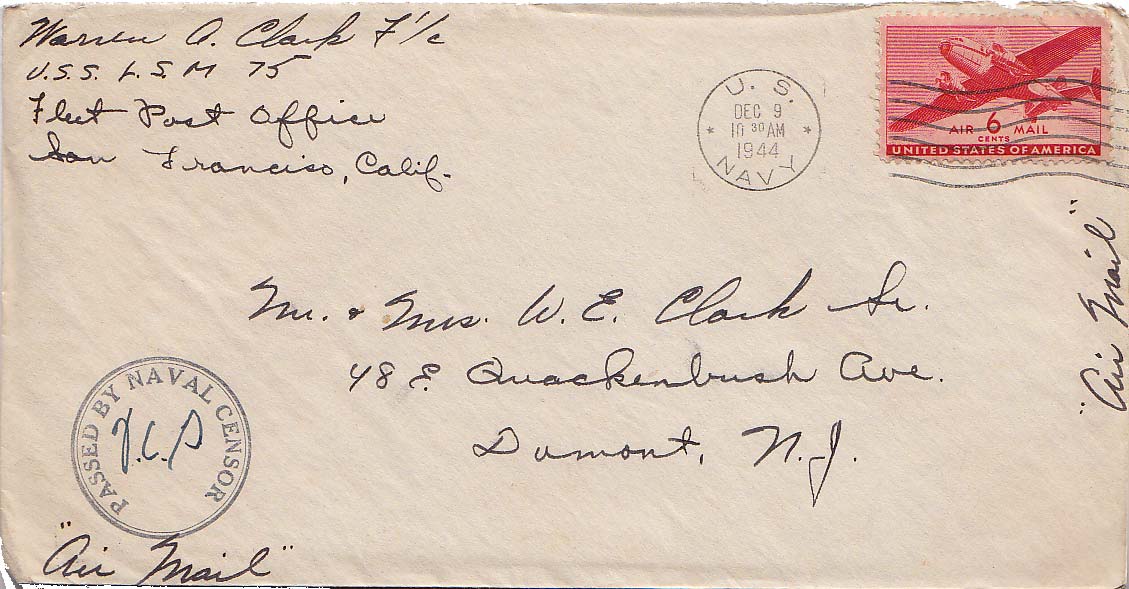 Warren A. Clark F1/c
U.S.S. L.S.M 75
Fleet Post Office
San Francisco, Calif.
U. S.
DEC 9
10 30 AM
1944
NAVY
AIR 6 MAIL
CENTS
UNITED STATES OF AMERICA
Mr. & Mrs. W. E. Clark Sr.
48 E. Quackenbush Ave.
Dumont, N.J.
"Air Mail"
PASSED BY NAVAL CENSOR
"Air Mail"